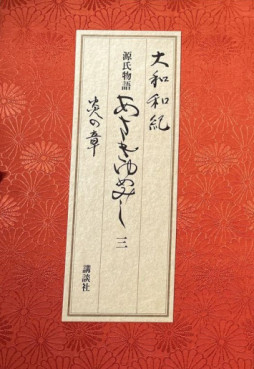 大和和紀
源氏物語
あさきゆめみし 三
炎の章
講談社